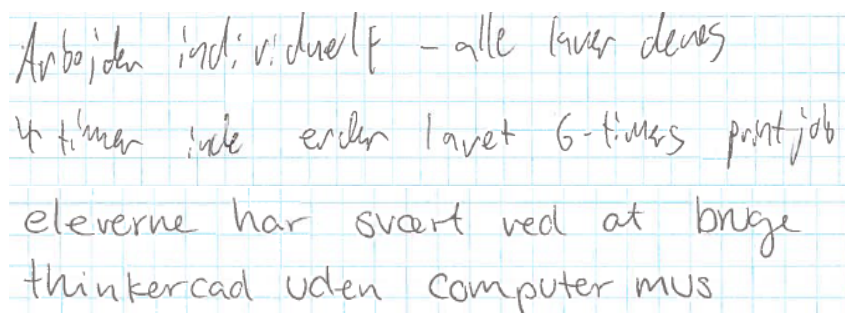 Arbejder individuelt - alle laver deres
4 timer inde er der lavet 6-timers printjob
eleverne har svært ved at bruge
thinkercad uden computer mus